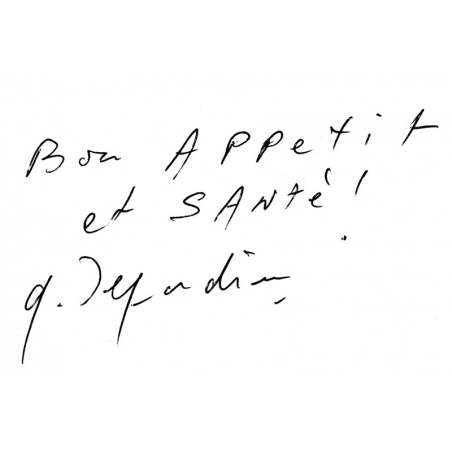 Bon APPetit
et SANtè !
G. Depardieu